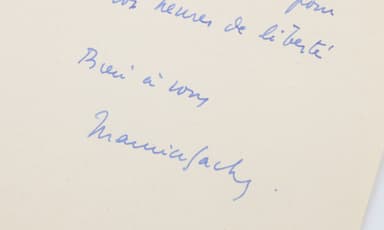 pour
vos heures de liberté
Bien à vous
Maurice Sachs.